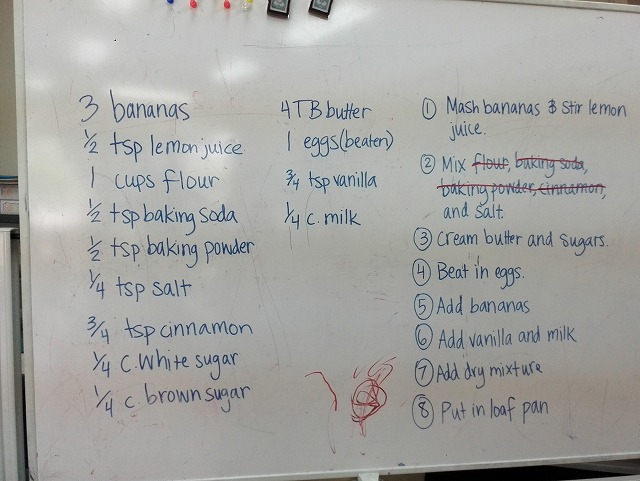 3 bananas
1/2 tsp lemon juice
1 cups flour
1/2 tsp baking soda
1/2 tsp baking powder
1/4 tsp salt
3/4 tsp cinnamon
1/4 c. white sugar
1/4 c. brown sugar
4 TB butter
1 eggs (beaten)
3/4 tsp vanilla
1/4 c. milk
① Mash bananas & stir lemon
juice.
② Mix flour, baking soda,
baking powder, cinnamon,
and salt
③ Cream butter and sugars.
④ Beat in eggs.
⑤ Add bananas
⑥ Add vanilla and milk
⑦ Add dry mixture
⑧ Put in loaf pan